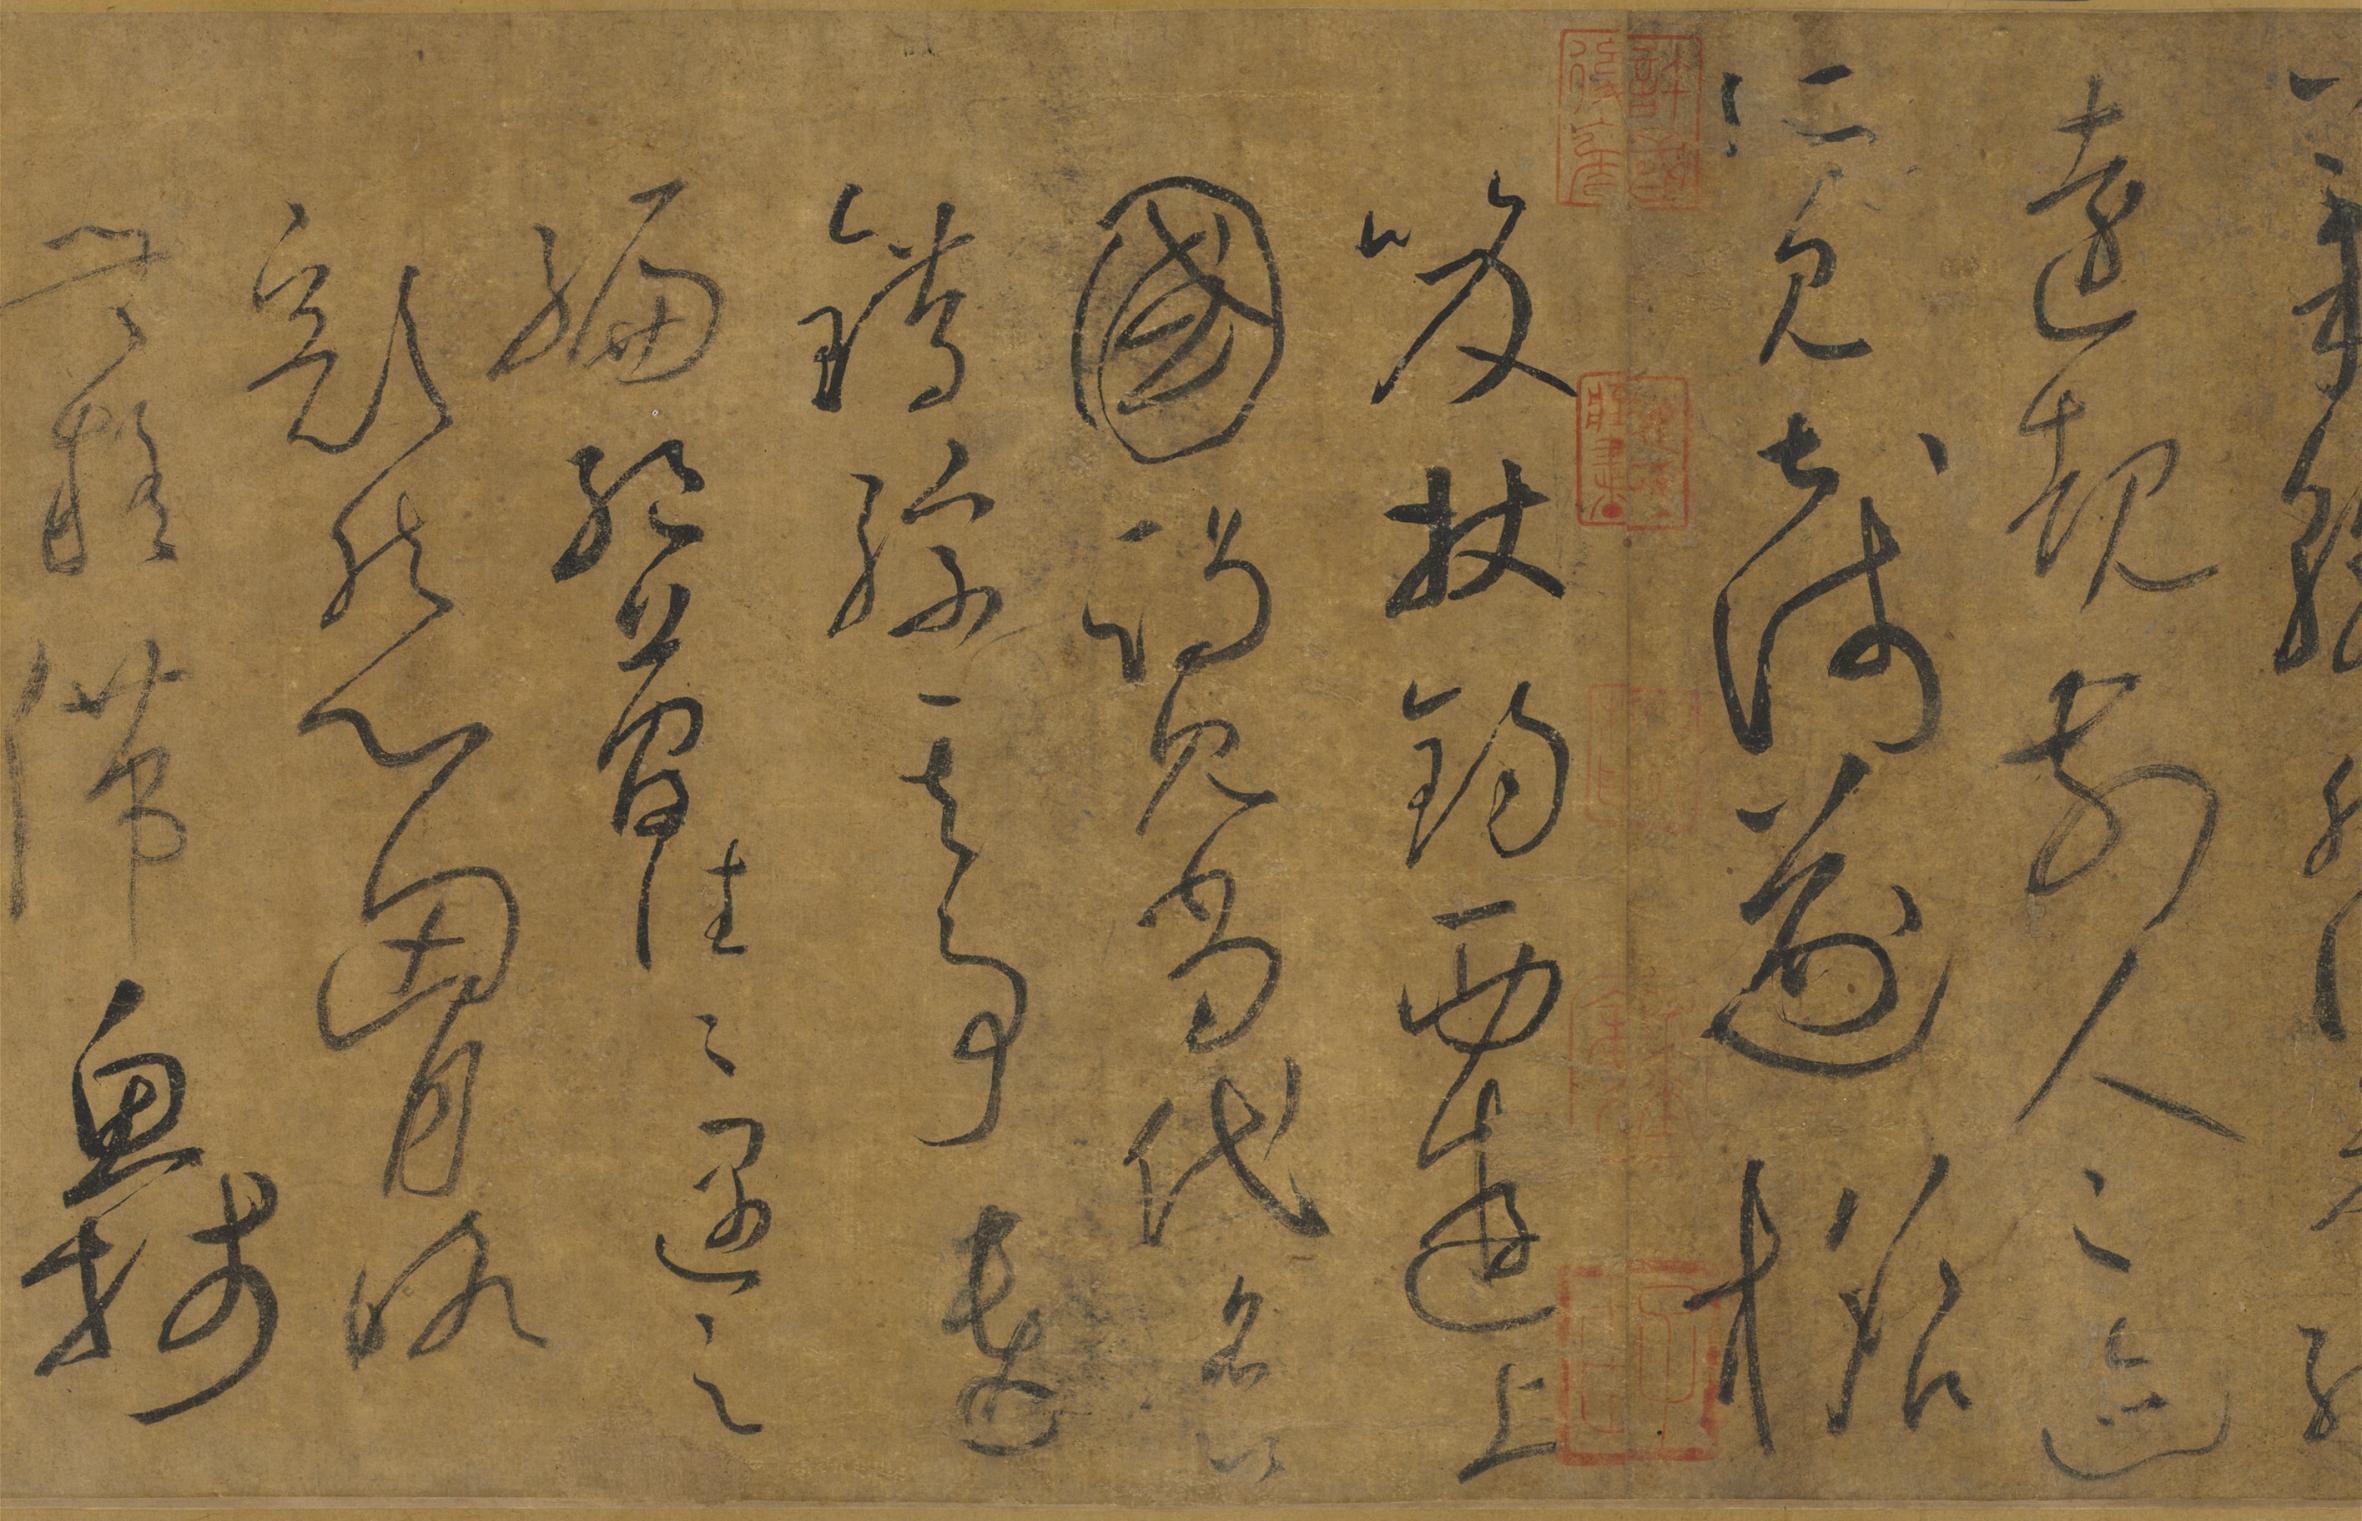 遠覩前人之奇迹
所見甚淺遂擔
笈杖錫西遊上
國謁見當代名公
錯綜其事遺
編絕簡往往遇之
豁然心胸略
無疑滯魚牋